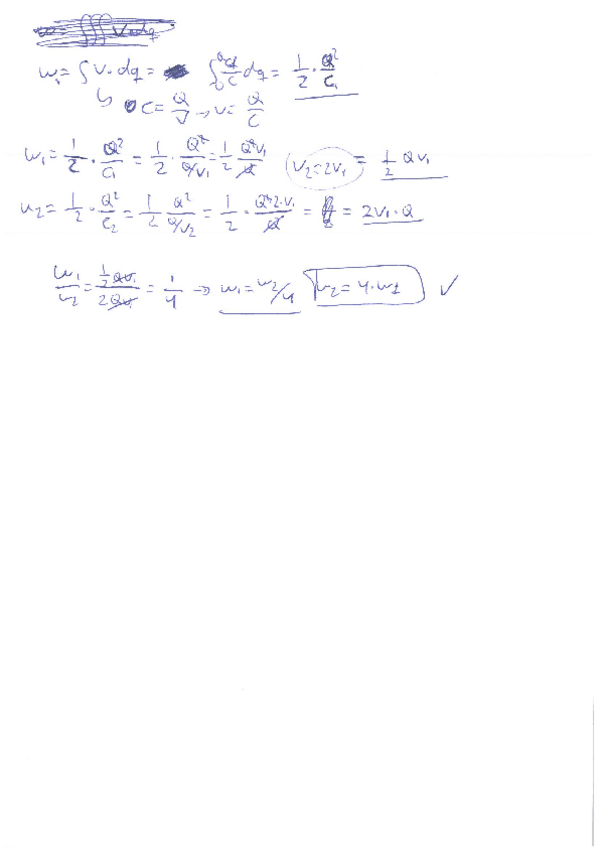 W₁ = ∫ V · dq = ∫₀^Q q/C dq = 1/2 · Q²/C₁
↳ C = Q/V → V = Q/C
W₁ = 1/2 · Q²/C₁ = 1/2 · Q²/(Q/V₁) = 1/2 Q²V₁/Q (V₂ = 2V₁) = 1/2 QV₁
W₂ = 1/2 · Q²/C₂ = 1/2 Q²/(Q/V₂) = 1/2 · Q²·2·V₁/Q = = 2V₁ · Q
W₁/W₂ = (1/2 QV₁)/(2QV₁) = 1/4 → W₁ = W₂/4 W₂ = 4 · W1 ✓